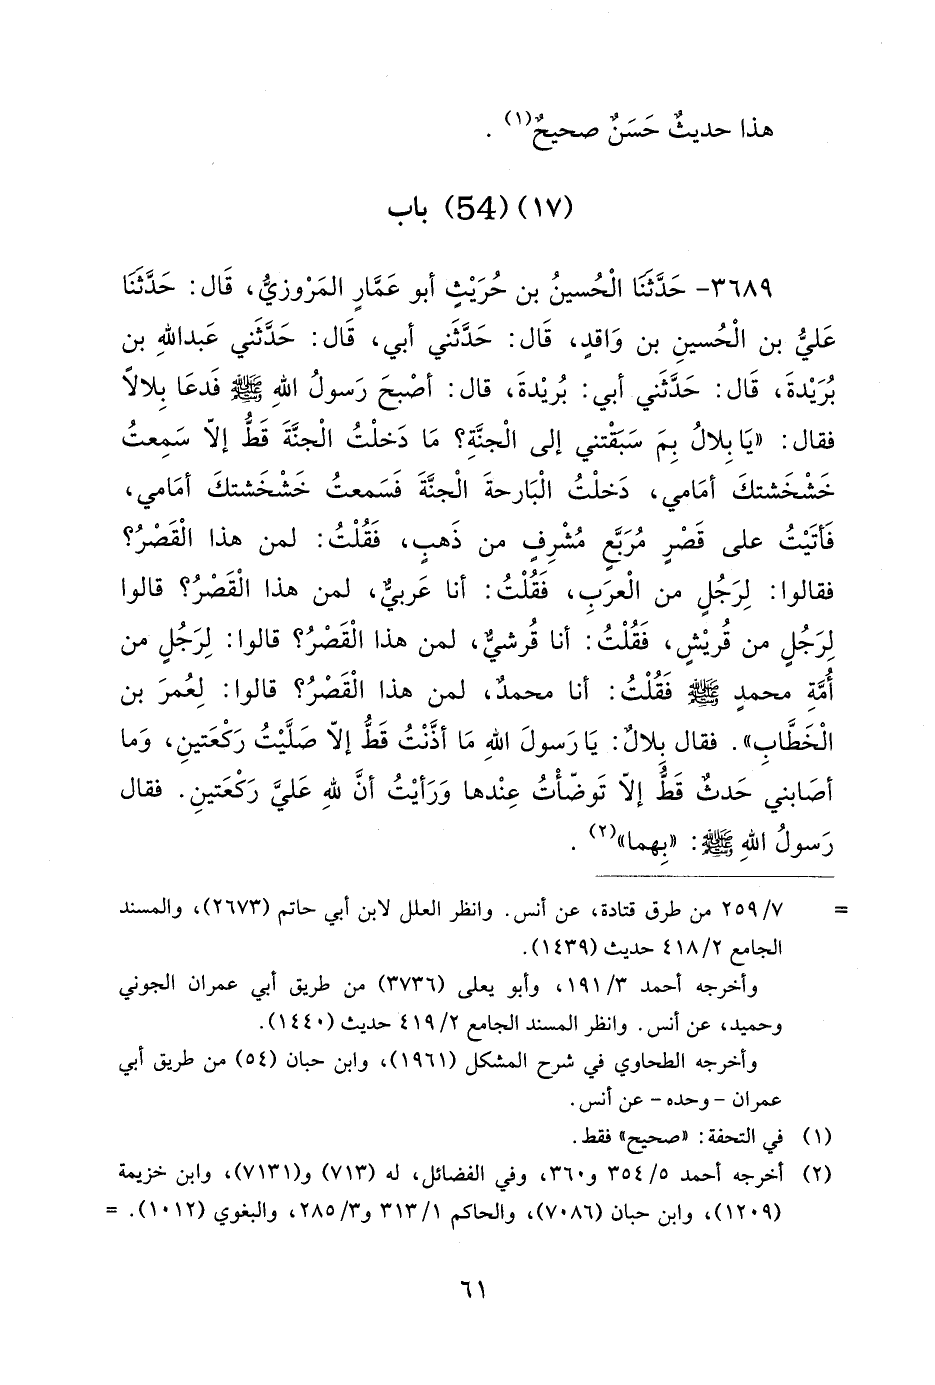 هذا حديثٌ حَسَنٌ صحيحٌ(١) .
(١٧) (54) باب
٣٦٨٩- حَدَّثَنَا الْحُسينُ بن حُرَيْثٍ أبو عَمَّارٍ المَرْوزيُّ، قَال: حَدَّثَنَا
عَليُّ بن الْحُسينِ بن وَاقدٍ، قَال: حَدَّثَني أبي، قَال: حَدَّثَني عَبدالله بن
بُرَيْدةَ، قَال: حَدَّثَني أبي: بُريْدةَ، قال: أصْبحَ رَسولُ اللهِ ﷺ فَدعَا بِلالاً
فقال: «يَا بِلالُ بِمَ سَبَقْتني إلى الْجنَّةِ؟ مَا دَخلْتُ الْجنَّةَ قَطُّ إلاّ سَمِعتُ
خَشْخَشتكَ أمَامي، دَخلْتُ الْبَارحةَ الْجنَّةَ فَسَمعتُ خَشْخَشتكَ أمَامي،
فَأتَيْتُ على قَصْرٍ مُرَبَّعٍ مُشْرِفٍ من ذَهبٍ، فَقُلْتُ: لمن هذا الْقَصْرُ؟
فقالوا: لِرَجُلٍ من الْعرَبِ، فَقُلْتُ: أنا عَربيٌّ، لمن هذا الْقَصْرُ؟ قالوا
لِرَجُلٍ من قُريْشٍ، فَقُلْتُ: أنا قُرشيٌّ، لمن هذا الْقَصْرُ؟ قالوا: لِرَجُلٍ من
أُمَّةِ محمدٍ ﷺ فَقُلْتُ: أنا محمدٌ، لمن هذا الْقَصْرُ؟ قالوا: لِعُمرَ بن
الْخَطَّابِ». فقال بِلالٌ: يَا رَسولَ اللهِ مَا أذَّنْتُ قَطُّ إلاّ صَلَّيْتُ رَكْعَتينِ، وَما
أصَابني حَدثٌ قَطُّ إلاّ تَوضّأْتُ عِنْدها وَرَأيْتُ أنَّ للهِ عَليَّ رَكْعَتينِ. فقال
رَسولُ اللهِ ﷺ: «بِهما»(٢) .
= ٢٥٩/٧ من طرق قتادة، عن أنس. وانظر العلل لابن أبي حاتم (٢٦٧٣)، والمسند
الجامع ٤١٨/٢ حديث (١٤٣٩).
وأخرجه أحمد ١٩١/٣، وأبو يعلى (٣٧٣٦) من طريق أبي عمران الجوني
وحميد، عن أنس. وانظر المسند الجامع ٤١٩/٢ حديث (١٤٤٠).
وأخرجه الطحاوي في شرح المشكل (١٩٦١)، وابن حبان (٥٤) من طريق أبي
عمران - وحده - عن أنس.
(١) في التحفة: «صحيح» فقط.
(٢) أخرجه أحمد ٣٥٤/٥ و٣٦٠، وفي الفضائل، له (٧١٣) و(٧١٣١)، وابن خزيمة
(١٢٠٩)، وابن حبان (٧٠٨٦)، والحاكم ٣١٣/١ و٢٨٥/٣، والبغوي (١٠١٢). =
٦١